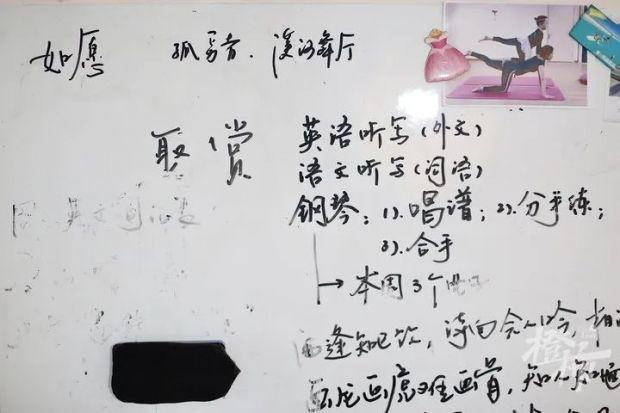 如愿 孤勇者、漠河舞厅
取赏
英语听写(外文)
语文听写(词语)
鋼琴:1).唱谱;2).分手练;
3).合手
→本周3个
逢知己饮,诗向会人吟,相
画虎难画骨,知人知
橙柿